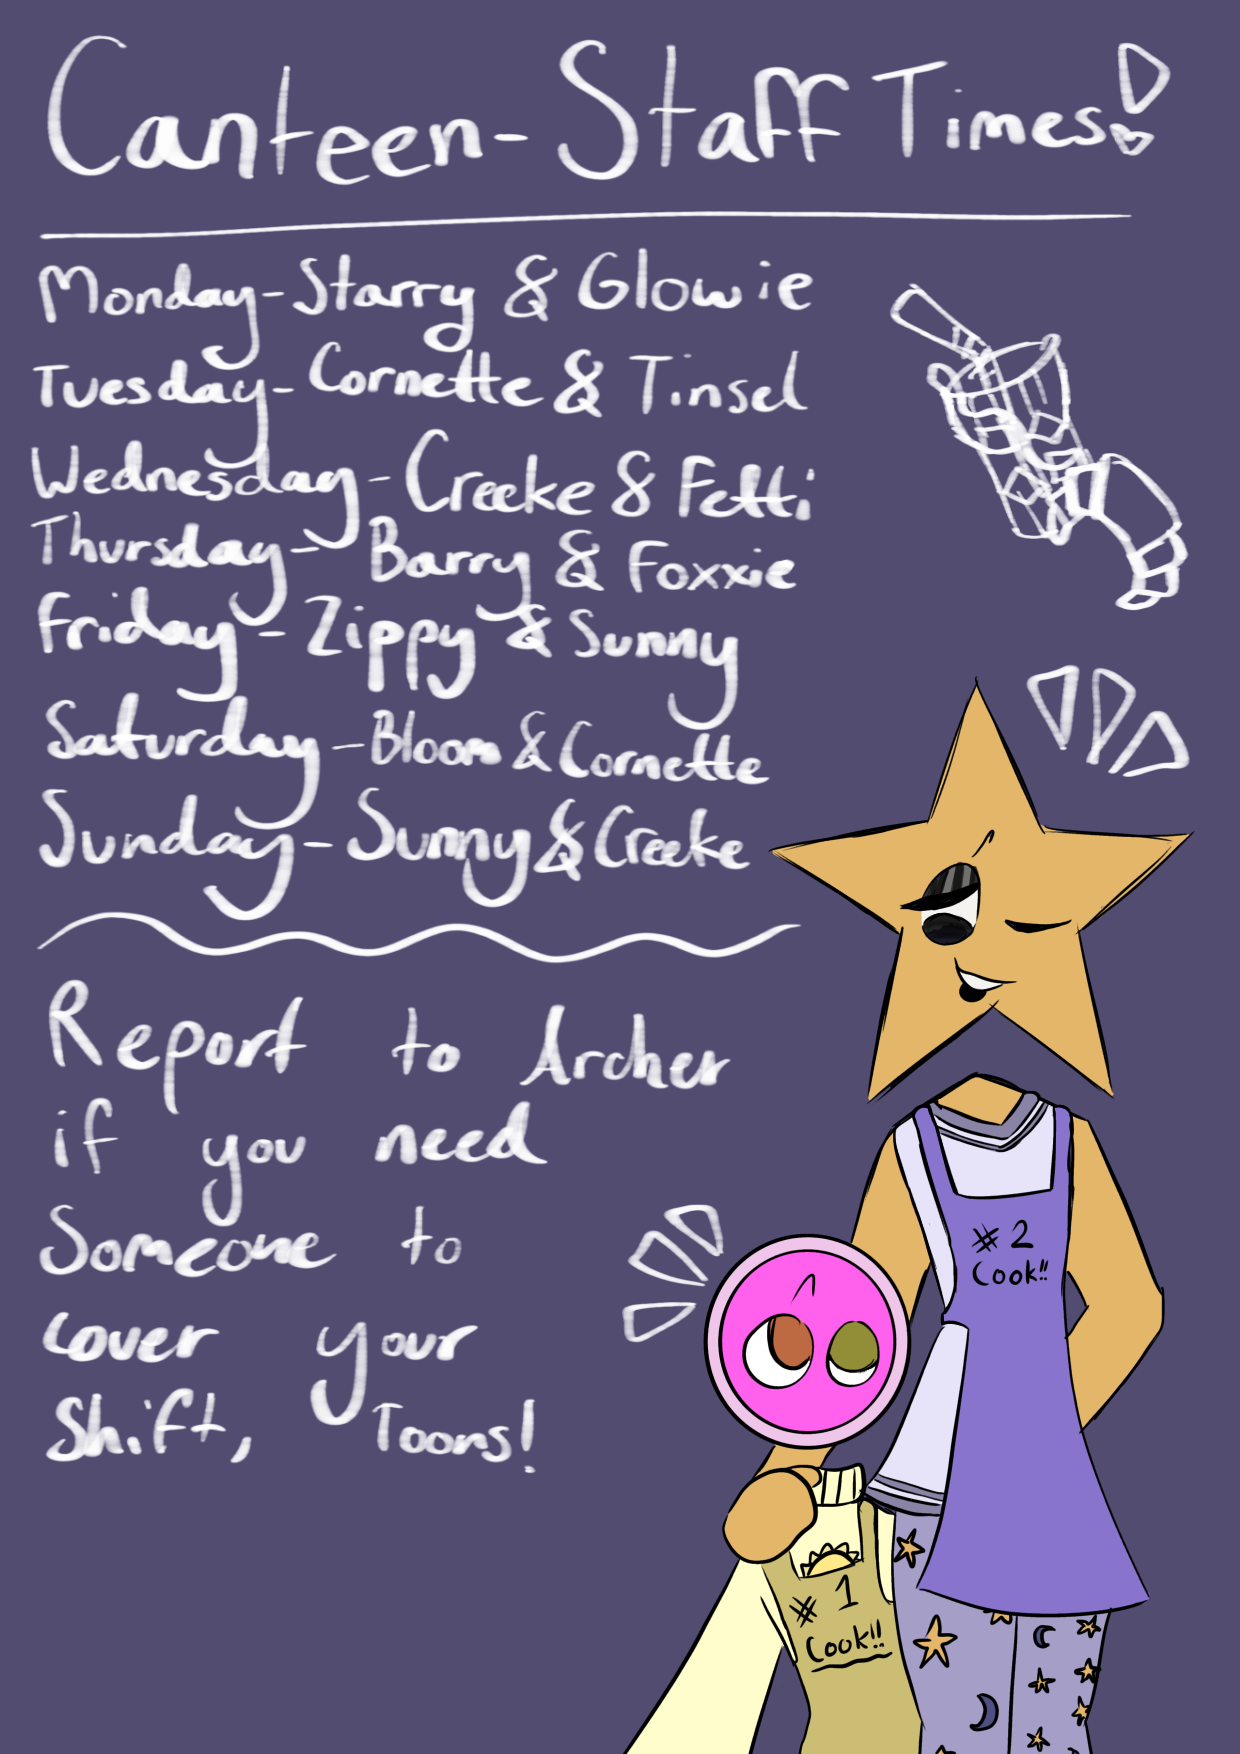 Canteen-Staff Times!
Monday-Starry & Glowie
Tuesday-Cornette & Tinsel
Wednesday-Creeke & Fetti
Thursday-Barry & Foxxie
Friday-Zippy & Sunny
Saturday-Bloom & Cornette
Sunday-Sunny & Creeke
Report to Archer
if you need
Someone to
cover your
Shift, Toons!
#2
Cook!!
#1
Cook!!